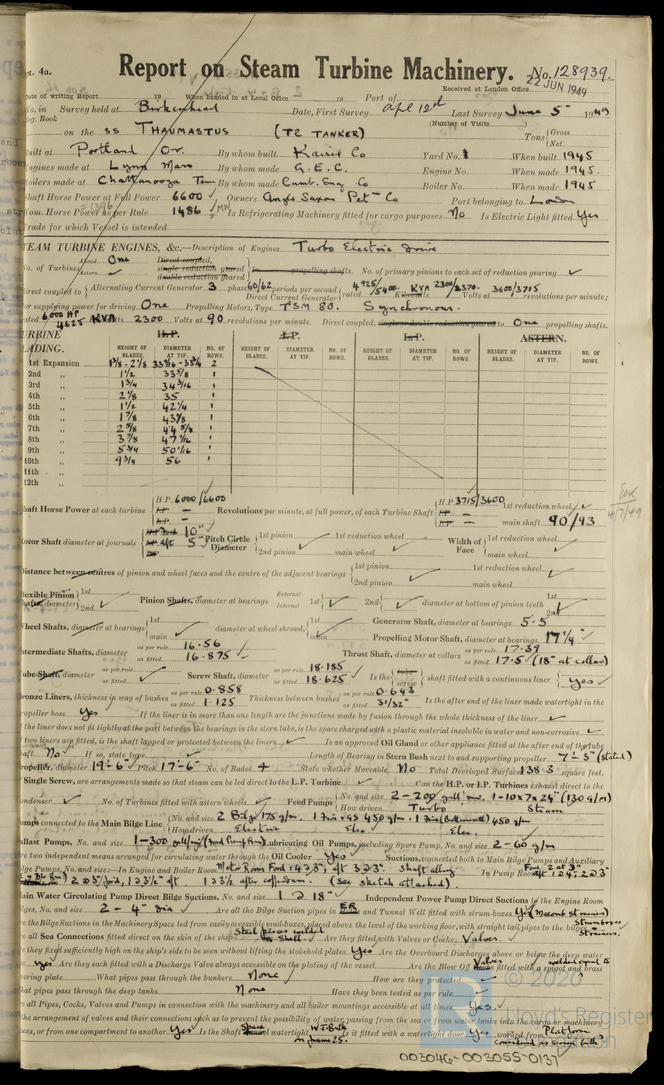 pt. 4a.
Report on Steam Turbine Machinery. No. 128939.
22 JUN 1949
Date of writing Report 19 When handed in at Local Office 19 Port of Received at London Office
No. in Survey held at Birkenhead Date, First Survey Apl 12th Last Survey June 5 1949
Reg. Book (Number of Visits
on the SS THAUMASTUS (T2 TANKER) Tons { Gross Net
Built at Portland Or. By whom built Kaiser Co Yard No. When built 1945
Engines made at Lynn Mass By whom made G.E.C. Engine No. When made 1945
Boilers made at Chattanooga Tenn By whom made Comb. Eng Co Boiler No. When made 1945
Shaft Horse Power at Full Power 6600 Owners Anglo Saxon Petm Co Port belonging to London
Nom. Horse Power as per Rule 1486 Is Refrigerating Machinery fitted for cargo purposes No Is Electric Light fitted Yes
Trade for which Vessel is intended
STEAM TURBINE ENGINES, &c.—Description of Engines Turbo Electric Drive
No. of Turbines Ahead One Direct coupled, single reduction geared double reduction geared } to propelling shafts. No. of primary pinions to each set of reduction gearing
Direct coupled to { Alternating Current Generator 3 phase 60/62 periods per second Direct Current Generator } rated 4925/5400 KVA Kilowatts 2300/2370 Volts at 3600/3715 revolutions per minute;
for supplying power for driving One Propelling Motors, Type TSM 80. Synchronous.
rated 6000 HP 4625 KVA 2300 Volts at 90 revolutions per minute. Direct coupled, single or double reduction geared to One propelling shafts.
TURBINE BLADING. H.P. I.P. L.P. ASTERN.
HEIGHT OF BLADES. DIAMETER AT TIP. NO. OF ROWS. HEIGHT OF BLADES. DIAMETER AT TIP. NO. OF ROWS. HEIGHT OF BLADES. DIAMETER AT TIP. NO. OF ROWS. HEIGHT OF BLADES. DIAMETER AT TIP. NO. OF ROWS.
1st Expansion 2
2nd „ 1½ 33⅝ 1
3rd „ 1¾ 34 3/16 1
4th „ 2⅛ 35 1
5th „ 1½ 42¼ 1
6th „ 1⅞ 43⅛ 1
7th „ 2⅝ 44⅝ 1
8th „ 3⅞ 47 1/16 1
9th „ 5¾ 50 1/16 1
10th „ 9¾ 56 1
11th „
12th „
Shaft Horse Power at each turbine { H.P. 6000/6600 Revolutions per minute, at full power, of each Turbine Shaft { H.P. 3715/3600 1st reduction wheel
main shaft 90/93
Rotor Shaft diameter at journals 10" 5" Pitch Circle Diameter { 1st pinion 1st reduction wheel 2nd pinion main wheel Width of Face { 1st reduction wheel main wheel
Distance between centres of pinion and wheel faces and the centre of the adjacent bearings { 1st pinion 1st reduction wheel 2nd pinion main wheel
Flexible Pinion Shafts, diameter { 1st 2nd Pinion Shafts, diameter at bearings External Internal 1st 2nd diameter at bottom of pinion teeth 1st 2nd
Wheel Shafts, diameter at bearings { 1st main diameter at wheel shroud, { 1st main Generator Shaft, diameter at bearings 5.5
Propelling Motor Shaft, diameter at bearings 17¼
Intermediate Shafts, diameter as per rule 16.56 as fitted 16.875 Thrust Shaft, diameter at collars as per rule 17.39 as fitted 17.5 (18" at collar)
Tube Shaft, diameter as per rule as fitted Screw Shaft, diameter as per rule 18.185 as fitted 18.625 Is the { tube screw } shaft fitted with a continuous liner { Yes
Bronze Liners, thickness in way of bushes as per rule 0.858 as fitted 1.125 Thickness between bushes as per rule 0.643 as fitted 31/32" Is the after end of the liner made watertight in the
propeller boss Yes If the liner is in more than one length are the junctions made by fusion through the whole thickness of the liner
If the liner does not fit tightly at the part between the bearings in the stern tube, is the space charged with a plastic material insoluble in water and non-corrosive
If two liners are fitted, is the shaft lapped or protected between the liners Is an approved Oil Gland or other appliance fitted at the after end of the tube
shaft No If so, state type Length of Bearing in Stern Bush next to and supporting propeller 7'-5" (stated)
Propeller, diameter 19'-6" Pitch 17'-6" No. of Blades 4 State whether Moveable No Total Developed Surface 138.3 square feet.
If Single Screw, are arrangements made so that steam can be led direct to the L.P. Turbine Can the H.P. or I.P. Turbines exhaust direct to the
Condenser No. of Turbines fitted with astern wheels Feed Pumps { No. and size 2-209 gall/m. 1-10x7x24" (130 G/m) How driven Turbo Steam
Pumps connected to the Main Bilge Line { No. and size 2 Bilge 175 g/m. 450 g/m. 450 g/m How driven Electric Elec Elec.
Ballast Pumps, No. and size 1-300 gall/m Lubricating Oil Pumps, including Spare Pump, No. and size 2-60 g/m
Are two independent means arranged for circulating water through the Oil Cooler Yes Suctions, connected both to Main Bilge Pumps and Auxiliary
Bilge Pumps, No. and size:—In Engine Room Motor Room Ford aft Shaft alley In Pump Room
(See sketch attached).
Main Water Circulating Pump Direct Bilge Suctions, No. and size 1 @ 18" Independent Power Pump Direct Suctions to the Engine Room
Bilges, No. and size 2-4" dia Are all the Bilge Suction pipes in E.R and Tunnel Well fitted with strum-boxes Yes
Are the Bilge Suctions in the Machinery Space led from easily accessible mud-boxes, placed above the level of the working floor, with straight tail pipes to the bilges Strainers.
Are all Sea Connections fitted direct on the skin of the ship Are they fitted with Valves or Cocks Valves.
Are they fixed sufficiently high on the ship's side to be seen without lifting the stokehold plates Yes Are the Overboard Discharges above or below the deep water
line Yes Are they each fitted with a Discharge Valve always accessible on the plating of the vessel Are the Blow Off Valves fitted with a spigot and brass
covering plate What pipes pass through the bunkers None How are they protected
What pipes pass through the deep tanks None Have they been tested as per rule
Are all Pipes, Cocks, Valves and Pumps in connection with the machinery and all boiler mountings accessible at all times Yes.
Is the arrangement of valves and their connections such as to prevent the possibility of water, passing from the sea or from water tanks into the cargo or machinery
spaces, or from one compartment to another Yes Is the Shaft watertight W.T. Bulk on frame 25. Is it fitted with a watertight door Yes worked from Platform
© 2020
Lloyd's Register
003046-003055-0137